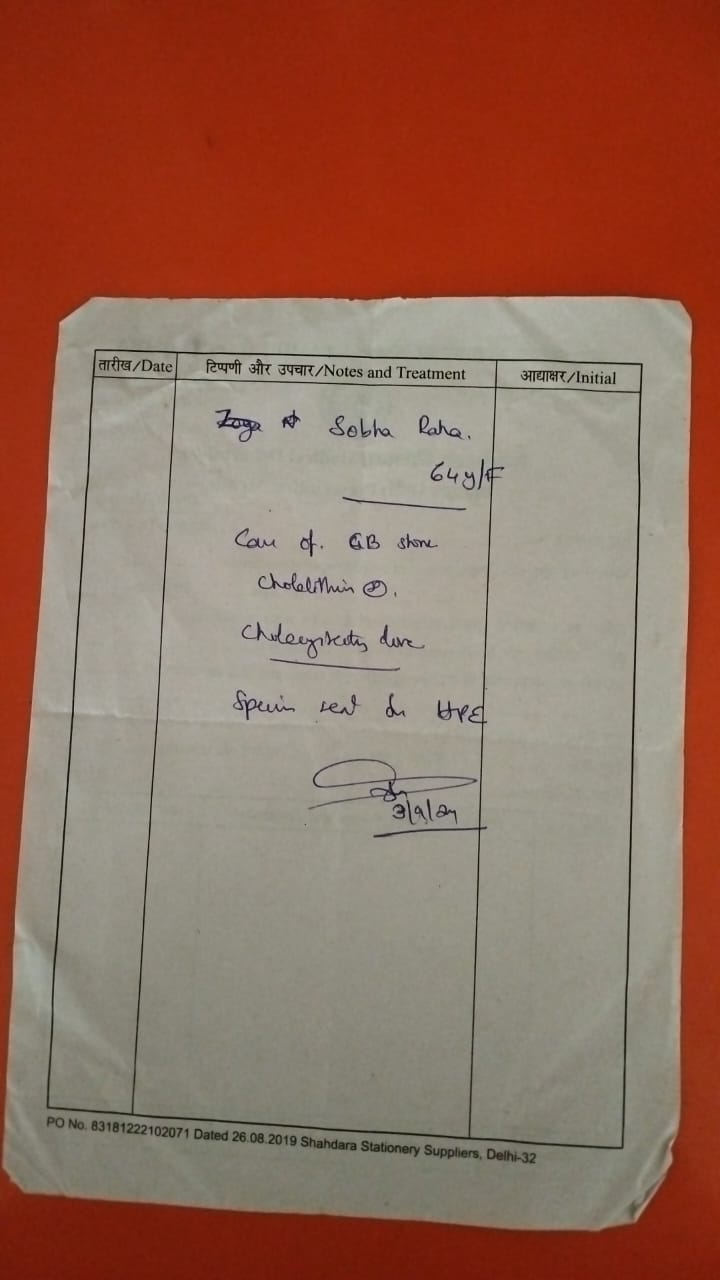 तारीख/Date टिप्पणी और उपचार/Notes and Treatment आद्याक्षर/Initial
Sobha Raha.
64y/F
Case of. GB stone
Cholelithia
Cholecystectomy done
Specim sent for HPE
3/9/24
PO No. 83181222102071 Dated 26.08.2019 Shahdara Stationery Suppliers, Delhi-32